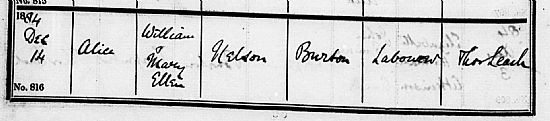 No. 815
1884
Dec
14
Alice
William
&
Mary
Ellen
Nelson
Burton
Labourer
Thos Leach
No. 816